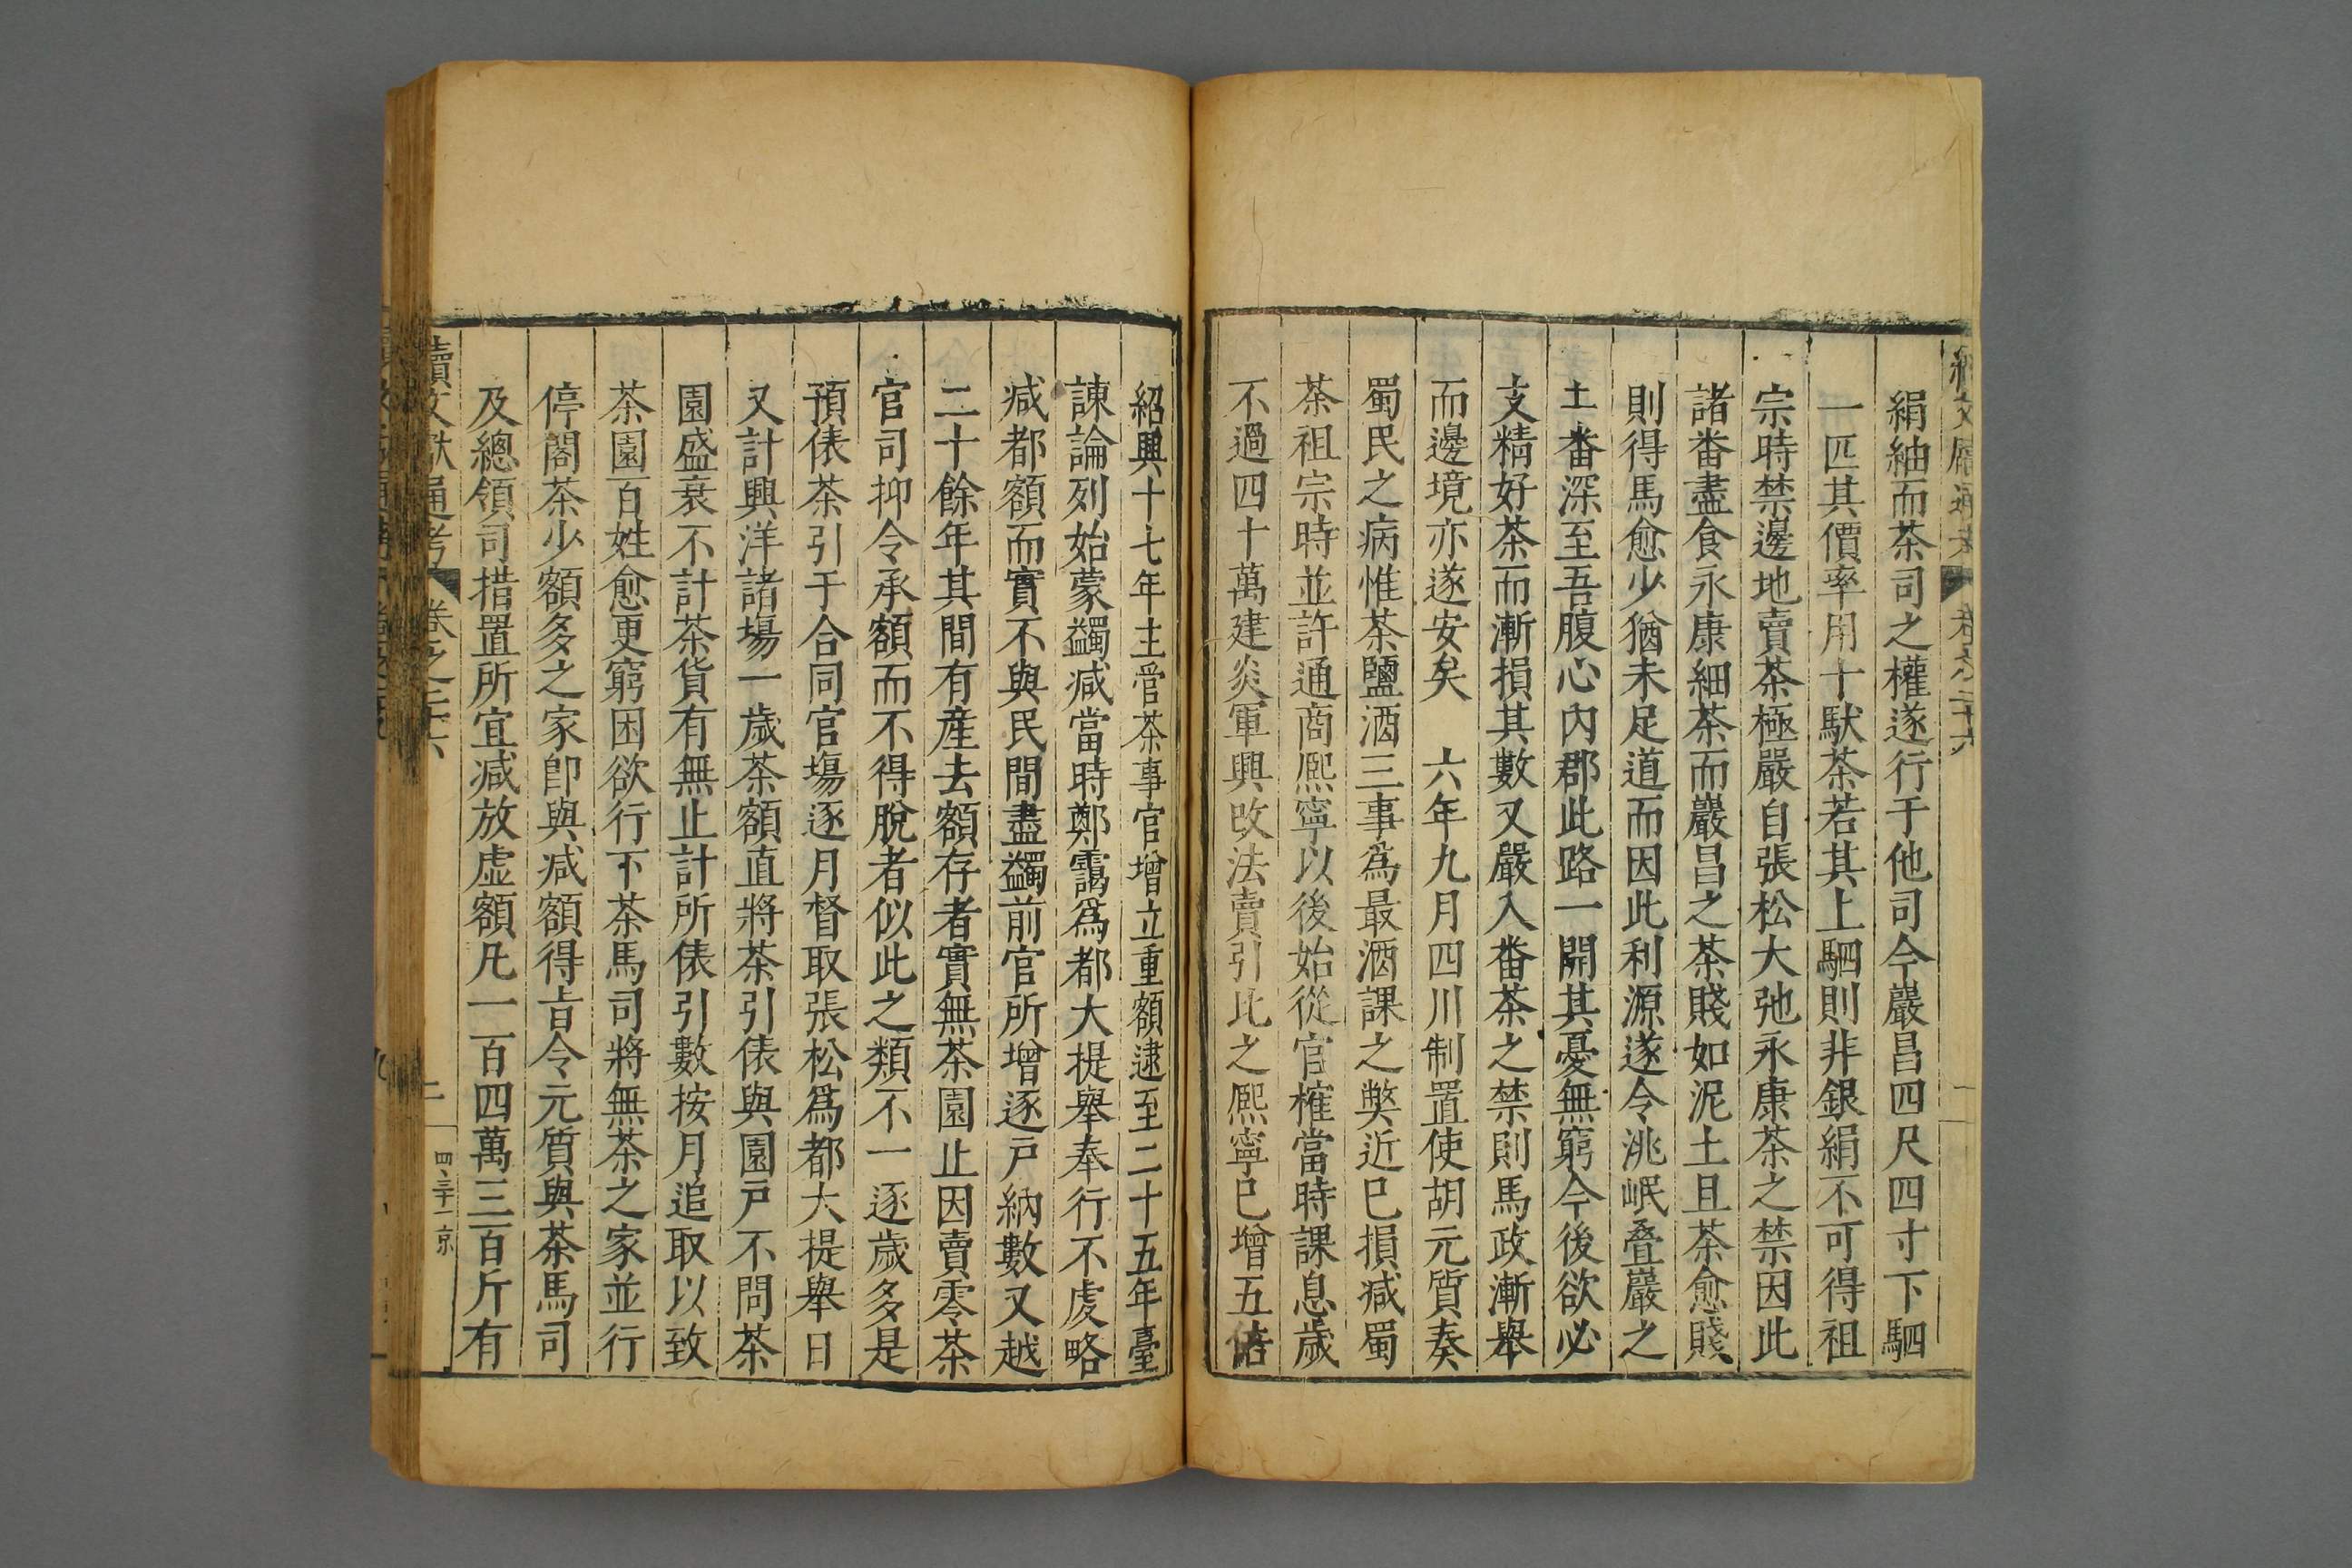 絹紬而茶司之權遂行于他司今巖昌四尺四寸下駟
一匹其價率用十馱茶若其上駟則非銀絹不可得祖
宗時禁邊地賣茶極嚴自張松大弛永康茶之禁因此
諸畨盡食永康細茶而巖昌之茶賤如泥土且茶愈賤
則得馬愈少猶未足道而因此利源遂令洮岷疊巖之
土畨深至吾腹心內郡此路一開其憂無窮今後欲必
支精好茶而漸損其數又嚴入畨茶之禁則馬政漸舉
而邊境亦遂安矣　六年九月四川制置使胡元質奏
蜀民之病惟茶鹽酒三事爲最酒課之弊近已損减蜀
茶祖宗時並許通商熈寧以後始從官榷當時課息歲
不過四十萬建炎軍興改法賣引比之熈寧已增五倍
紹興十七年主管茶事官增立重額逮至二十五年臺
諫論列始蒙蠲减當時鄭靄爲都大提舉奉行不虔略
减都額而實不與民間盡蠲前官所增逐戸納數又越
二十餘年其間有産去額存者實無茶園止因賣零茶
官司抑令承額而不得脫者似此之類不一逐歲多是
預俵茶引于合同官塲逐月督取張松爲都大提舉日
又計興洋諸塲一歲茶額直將茶引俵與園戸不問茶
園盛衰不計茶貨有無止計所俵引數按月追取以致
茶園百姓愈更窮困欲行下茶馬司將無茶之家並行
停閣茶少額多之家卽與减額得㫖令元質與茶馬司
及總領司措置所宜减放虛額凡一百四萬三百斤有
續文獻通考 卷之二十六